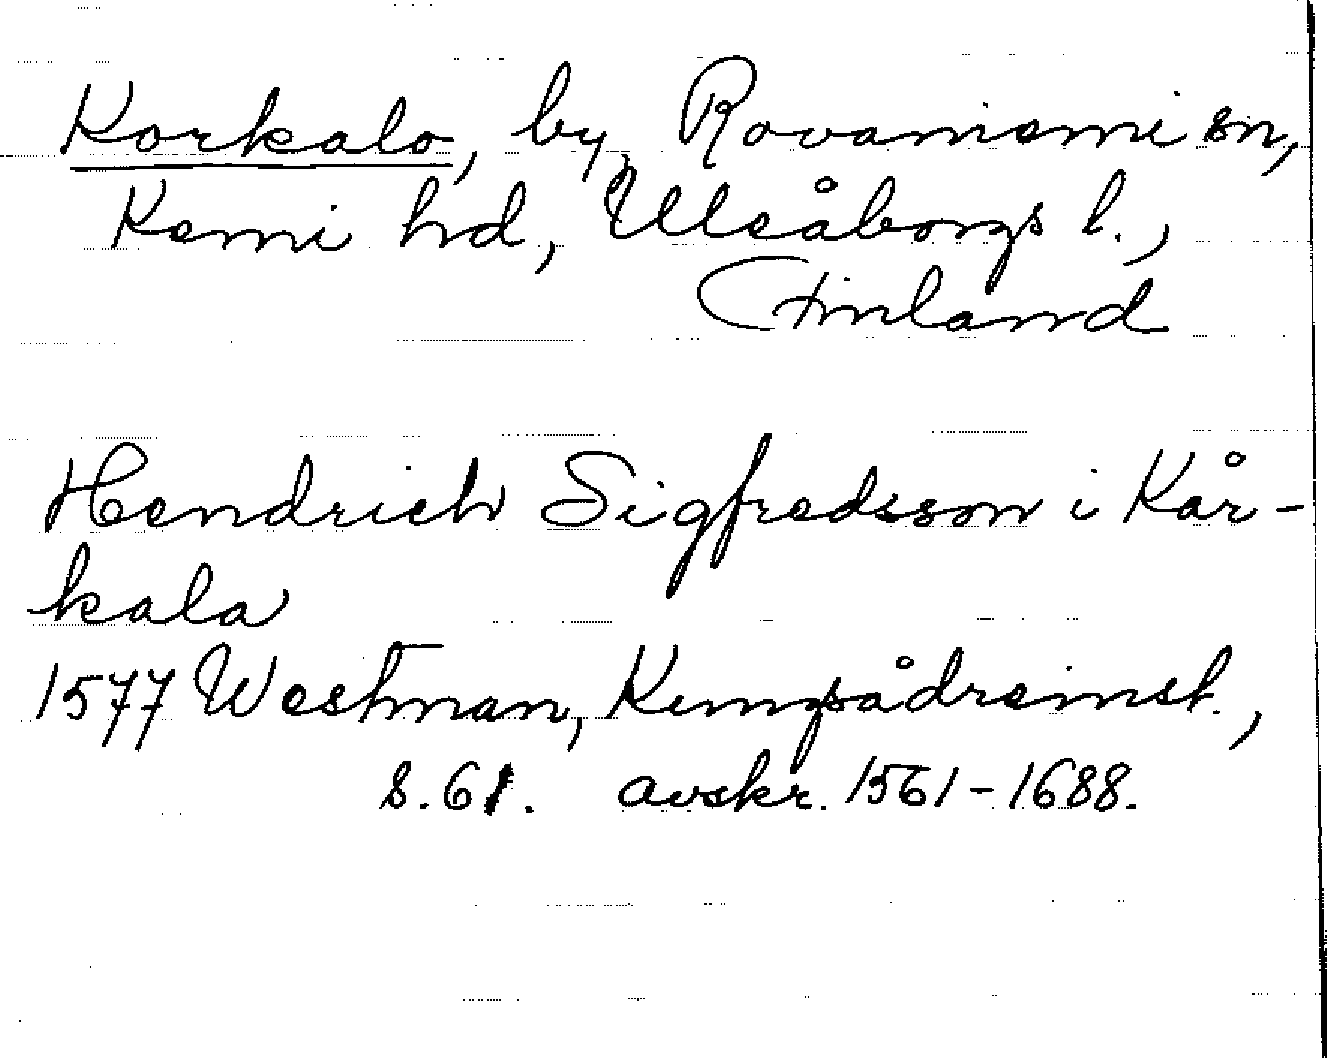 Korkalo, by, Rovaniemi sn,
Kemi hd, Uleåborgs l.,
Finland
Hendrich Sigfredsson i Kår-
kala
1577 Westman, Kungsådreinst.,
s. 61. avskr. 1561-1688.